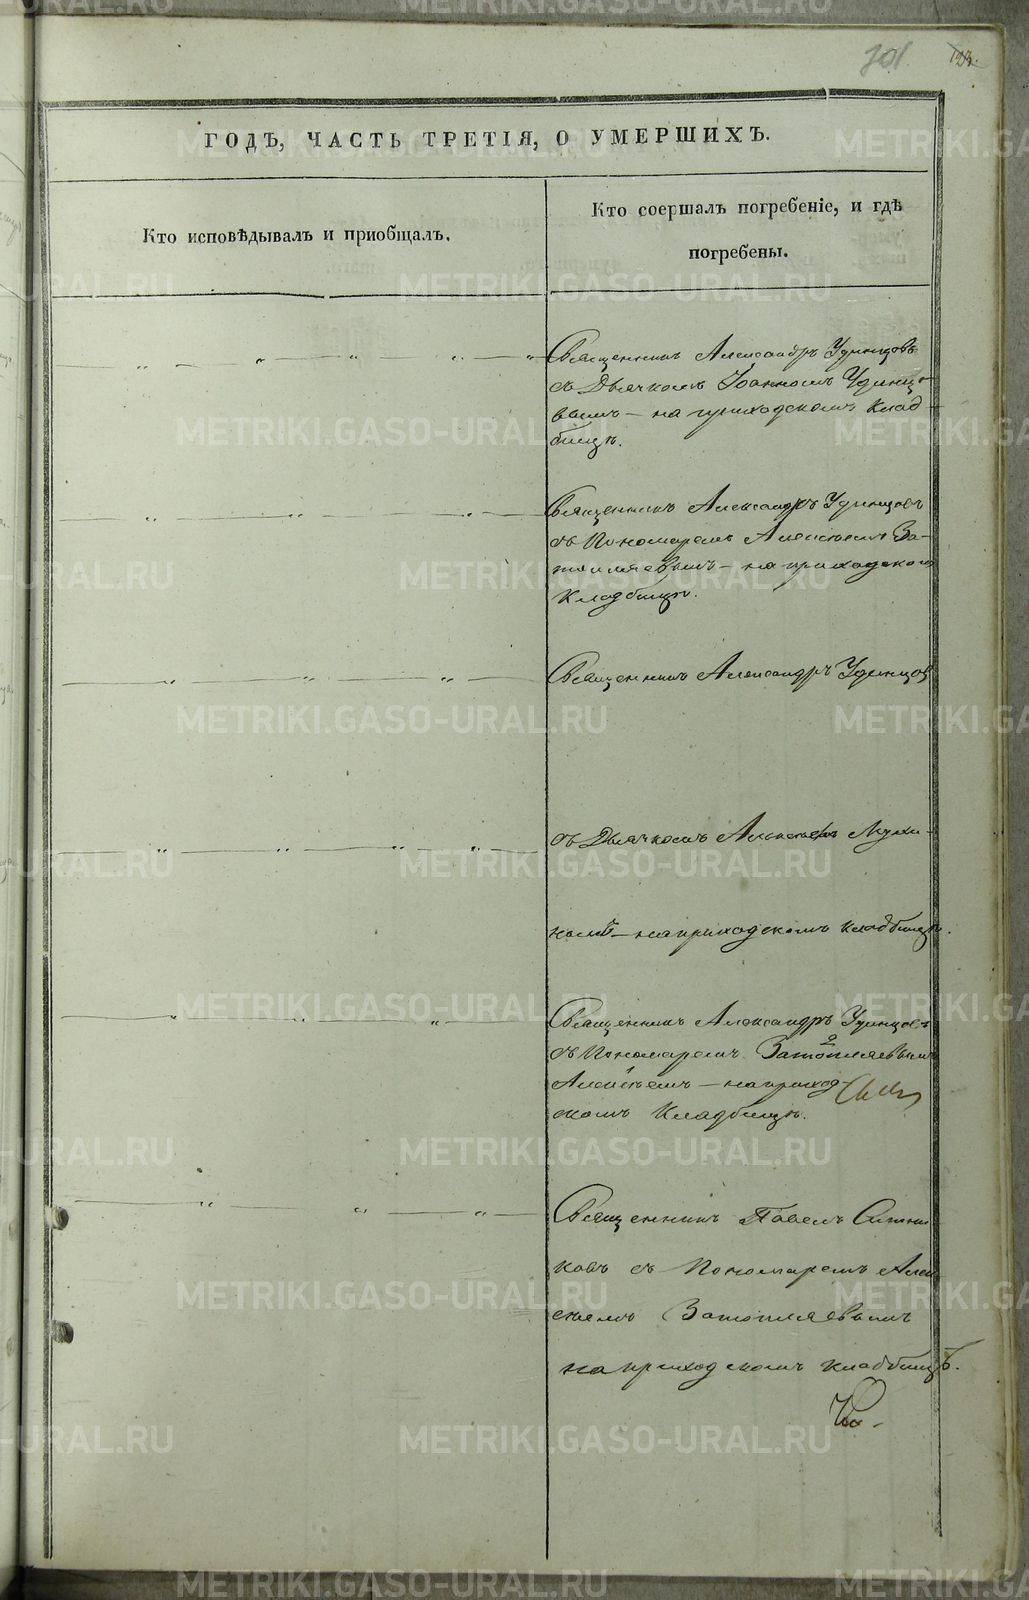 701
123.
ГОДЪ, ЧАСТЬ ТРЕТІЯ, О УМЕРШИХЪ.
Кто исповѣдывалъ и приобщалъ.
Кто соершалъ погребеніе, и гдѣ
погребены.
Священникъ Александръ Удинцовъ
съ Дьячкомъ Іоанномъ Удинцо-
вымъ – на приходскомъ клад-
бищѣ.
Священникъ Александръ Удинцовъ
съ Пономаремъ Алексѣемъ За-
топляевымъ – на приходскомъ
кладбищѣ.
Священникъ Александръ Удинцов
съ Дьячкомъ
на приходскомъ кладбищѣ.
Священникъ Александръ Удинцовъ
съ Пономаремъ Затопляевымъ
Алексѣемъ – на приход-
скомъ Кладбищѣ.
Священникъ Павелъ
ковъ съ Пономаремъ Алек
сѣемъ Затопляевымъ
на приходскомъ кладбищѣ.
METRIKI.GASO-URAL.RU